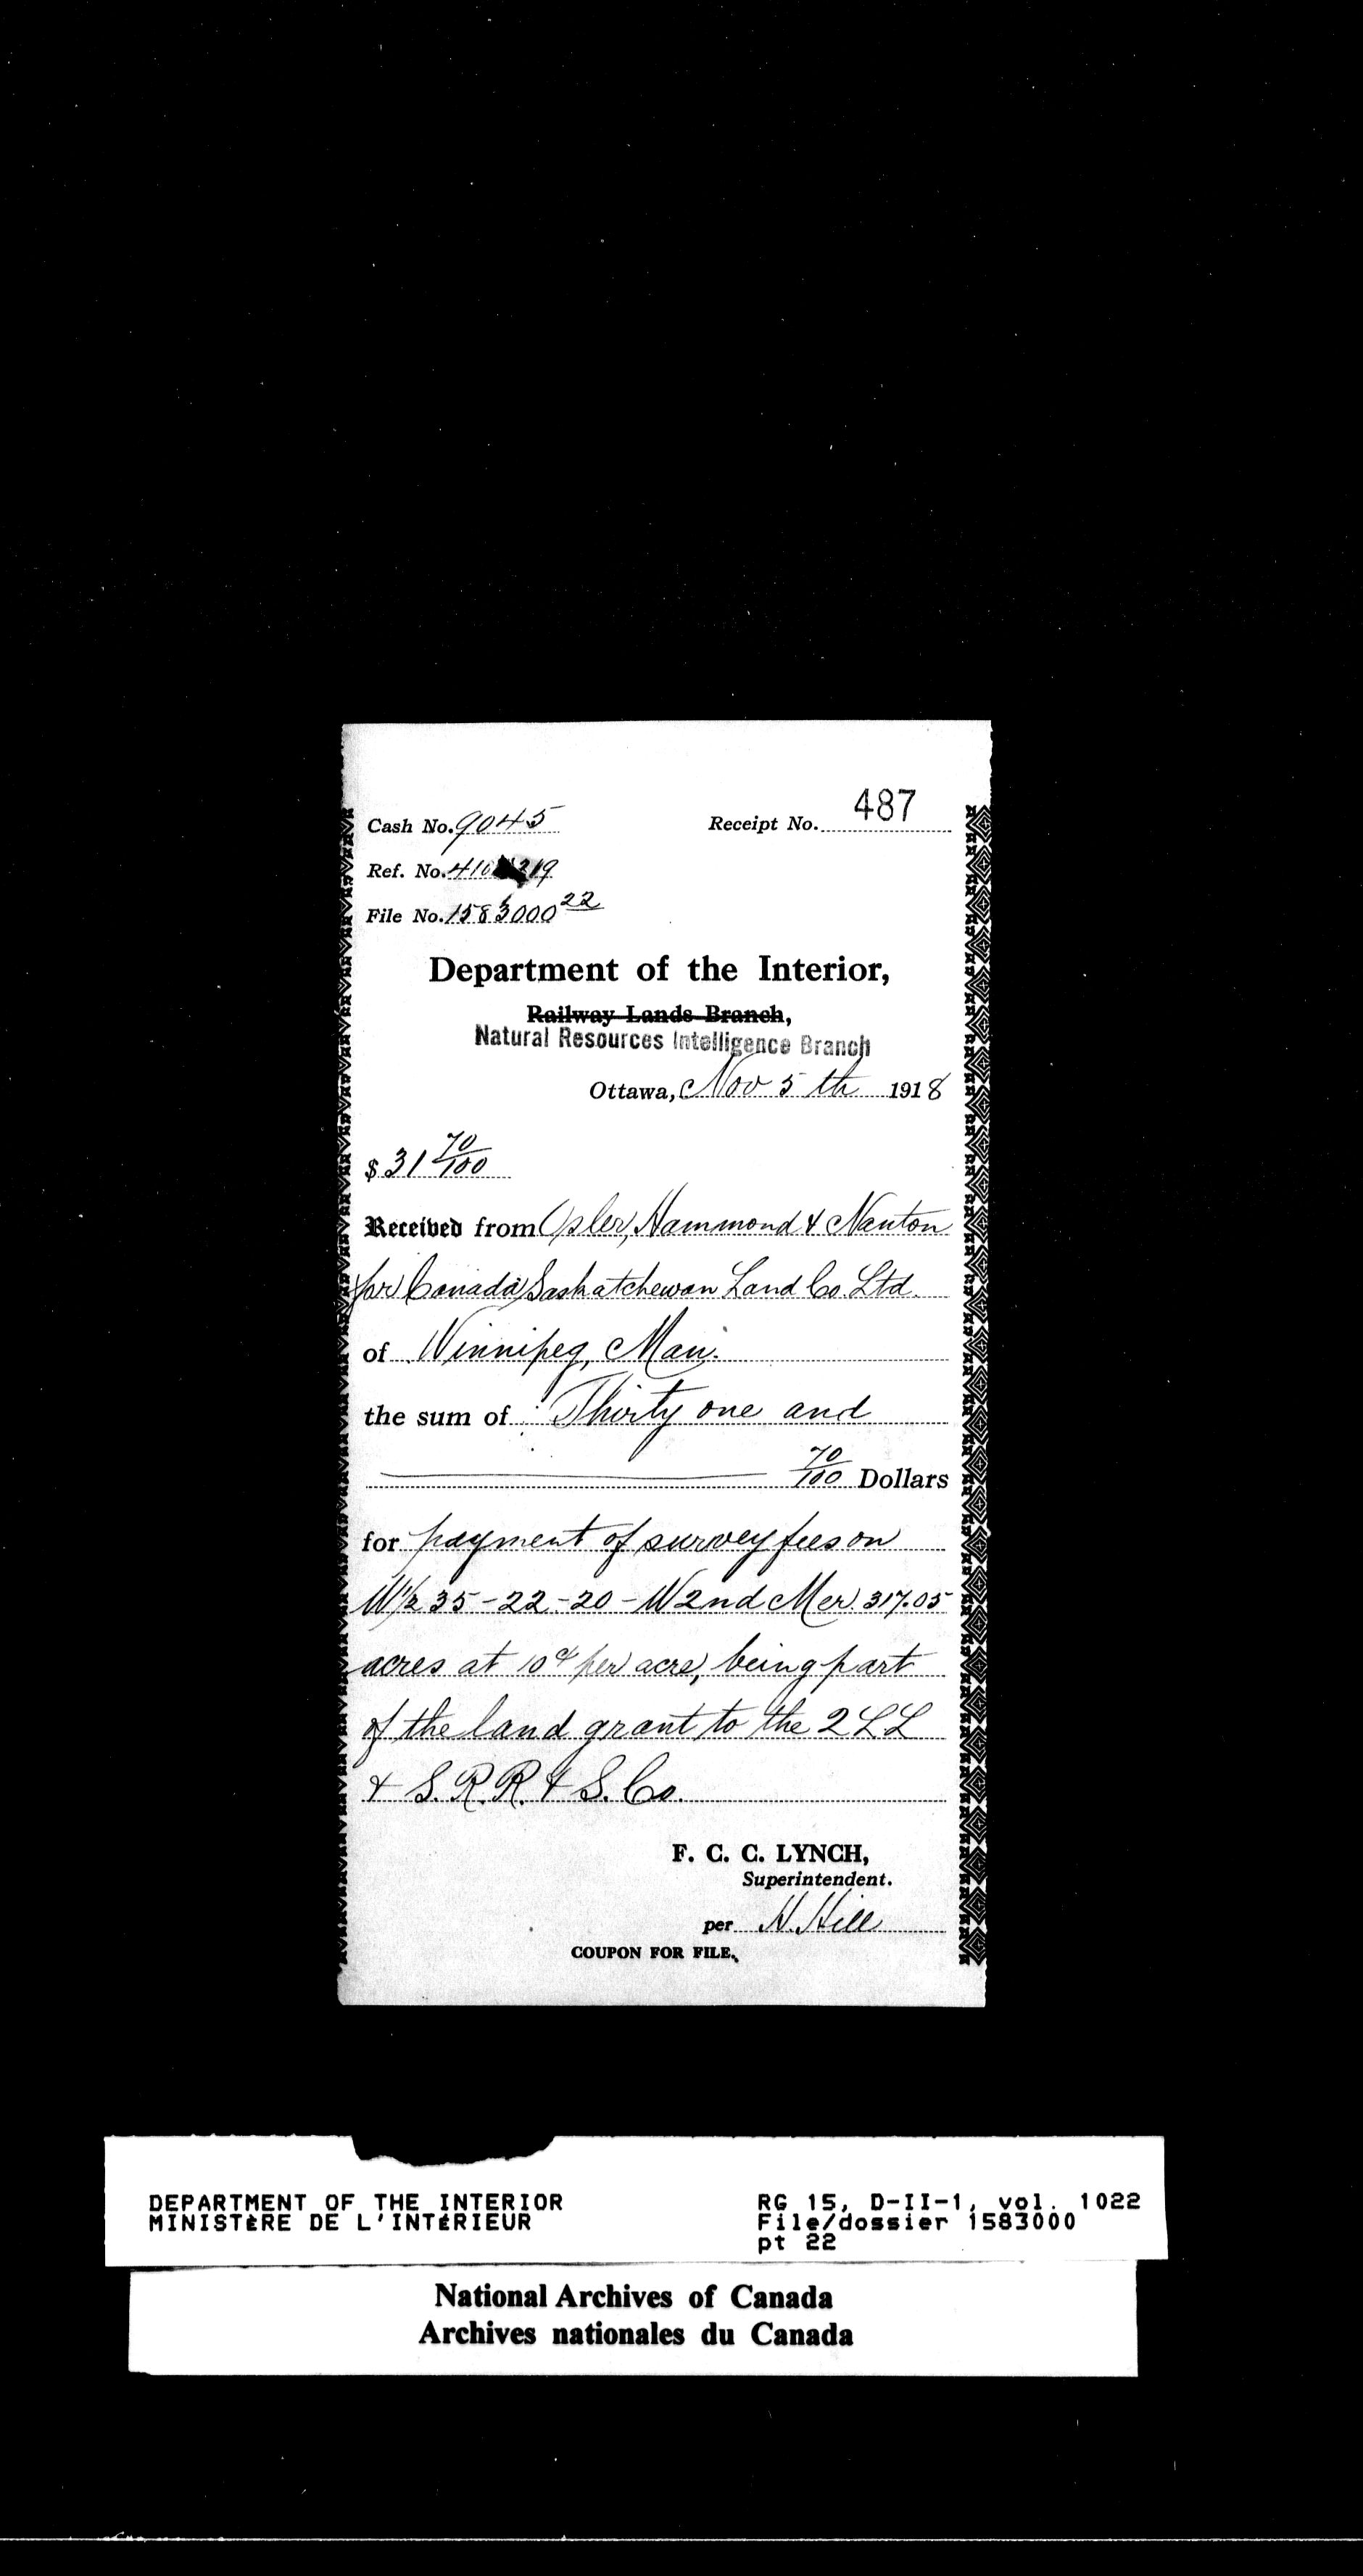 Cash No. 9045
Receipt No. 487
Ref. No. 410 319
File No. 1583000 22
Department of the Interior,
Railway Lands Branch,
Natural Resources Intelligence Branch
Ottawa, Nov 5th 1918
$ 31 70/100
Received from Osler, Hammond & Nanton
for Canada Saskatchewan Land Co. Ltd.
of Winnipeg, Man.
the sum of Thirty one and
70/100 Dollars
for payment of survey fees on
W 1/2 35-22-20-W2nd Mer. 317.05
acres at 10¢ per acre, being part
of the land grant to the 2LL
& S.R.R. & S. Co.
F. C. C. LYNCH,
Superintendent.
per H. Hill
COUPON FOR FILE.
DEPARTMENT OF THE INTERIOR
MINISTÈRE DE L'INTÉRIEUR
RG 15, D-II-1, vol. 1022
File/dossier 1583000
pt 22
National Archives of Canada
Archives nationales du Canada